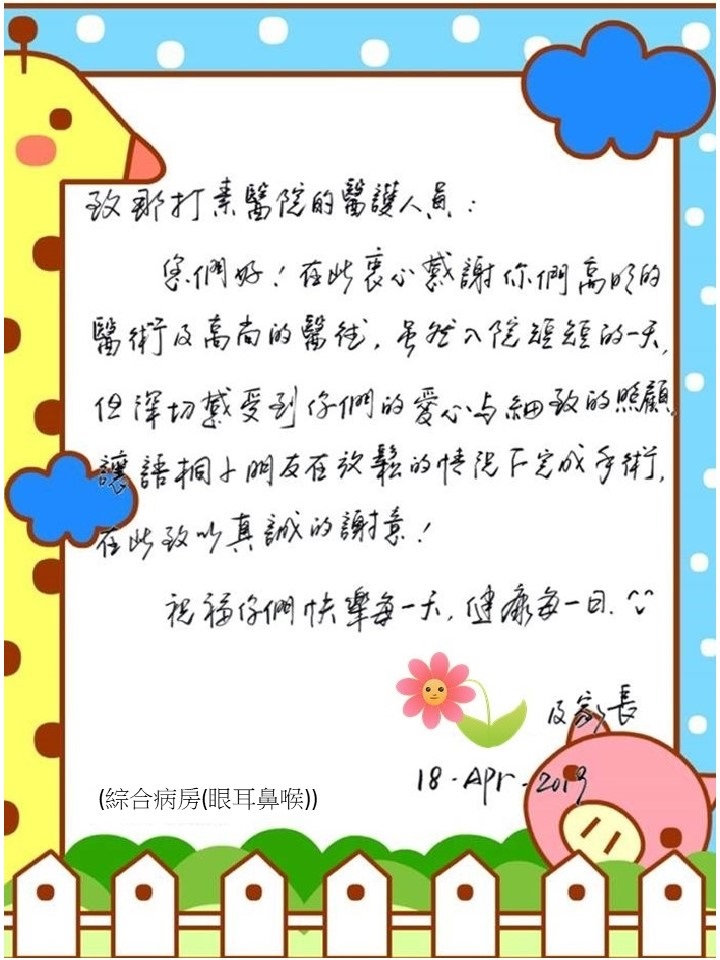 致那打素醫院的醫護人員：
您們好！在此衷心感謝你們高明的
醫術及高尚的醫德，虽然入院短短的一天，
但深切感受到你們的愛心与細致的照顧，
讓語桐小朋友在放鬆的情況下完成手術，
在此致以真誠的謝意！
祝福你們快樂每一天，健康每一日.
及家長
18-Apr-2019
(綜合病房(眼耳鼻喉))